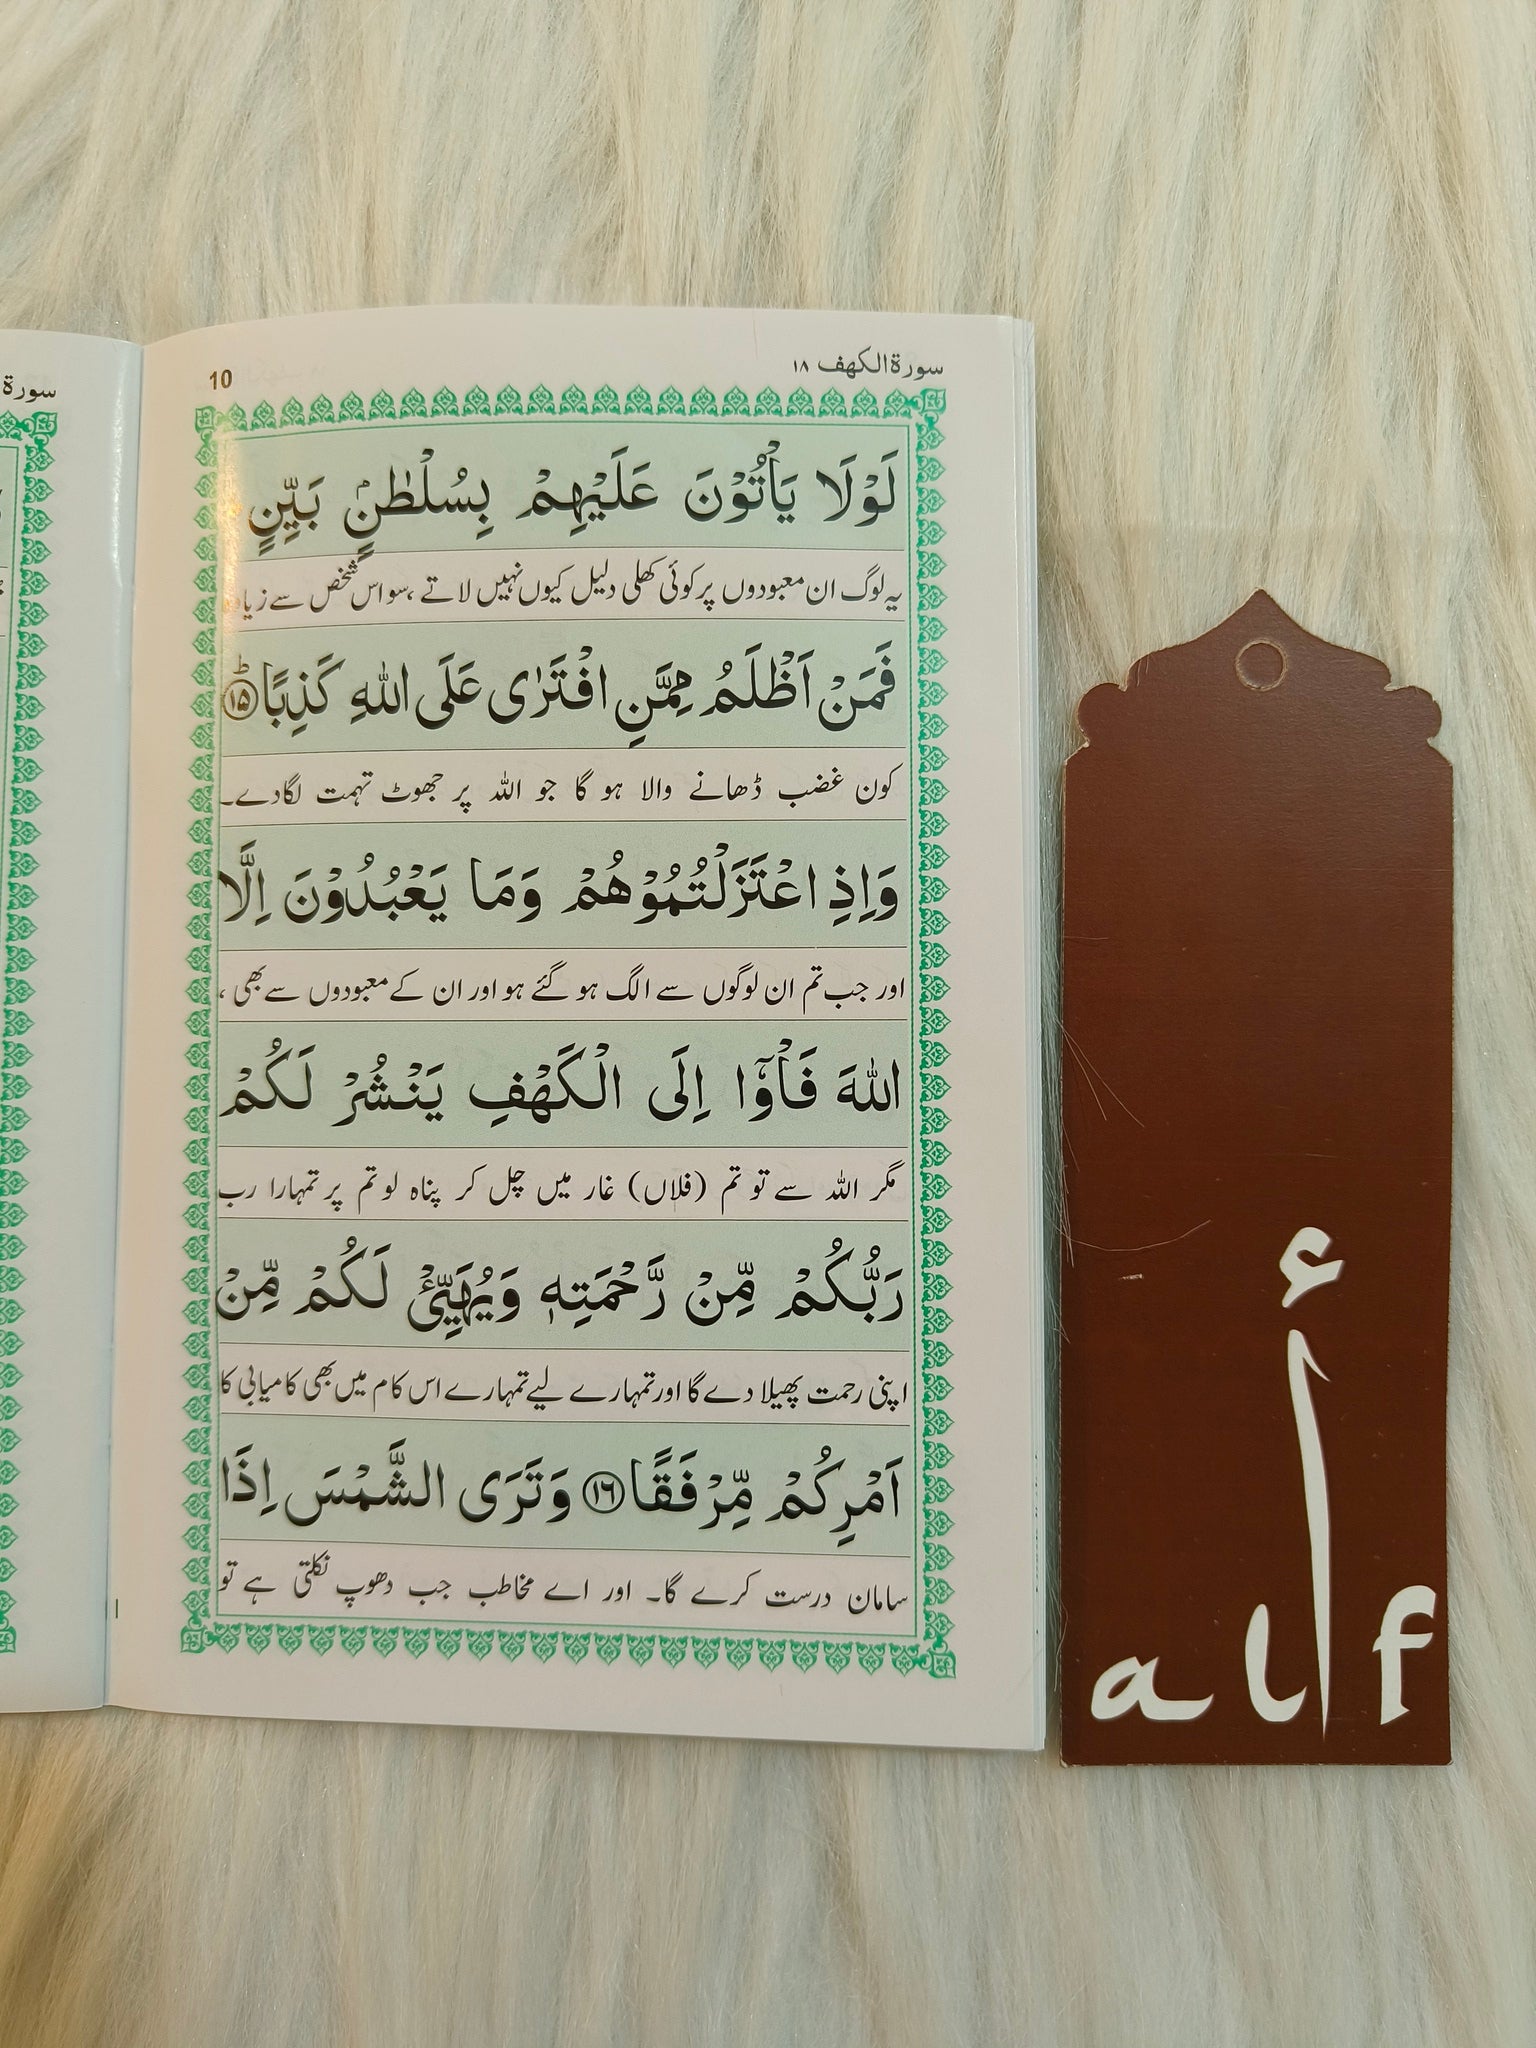 سورة الكهف ١٨
10
لَوْلَا يَاْتُوْنَ عَلَيْهِمْ بِسُلْطٰنٍۭ بَيِّنٍ
یہ لوگ ان معبودوں پر کوئی کھلی دلیل کیوں نہیں لاتے ،سو اس شخص سے
فَمَنْ اَظْلَمُ مِمَّنِ افْتَرٰى عَلَى اللّٰهِ كَذِبًا ؕ ۱۵
کون غضب ڈھانے والا ہو گا جو اللہ پر جھوٹ تہمت لگادے۔
وَاِذِ اعْتَزَلْتُمُوْهُمْ وَمَا يَعْبُدُوْنَ اِلَّا
اور جب تم ان لوگوں سے الگ ہو گئے ہو اور ان کے معبودوں سے بھی ،
اللّٰهَ فَاْوٗۤا اِلَى الْكَهْفِ يَنْشُرْ لَكُمْ
مگر اللہ سے تو تم (فلاں) غار میں چل کر پناہ لو تم پر تمہارا رب
رَبُّكُمْ مِّنْ رَّحْمَتِهٖ وَيُهَيِّئْ لَكُمْ مِّنْ
اپنی رحمت پھیلا دے گا اور تمہارے لیے تمہارے اس کام میں بھی کامیابی کا
اَمْرِكُمْ مِّرْفَقًا ۱۶ وَتَرَى الشَّمْسَ اِذَا
سامان درست کرے گا۔ اور اے مخاطب جب دھوپ نکلتی ہے تو
سورة
أ
alf